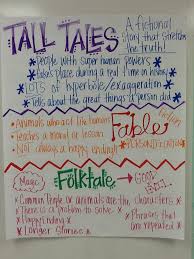 TALL TALES
A fictional
story that stretches
the truth!
* People with super human powers
* Takes place during a real time in history
* LOTS of hyperbole/exaggeration
* Tells about the great things a person did
Fable
fiction
* Animals who act like humans
PERSONIFICATION
* Teaches a moral or lesson
* Not always a happy ending!
Folktale
Magic
Good
* Common People or animals are the characters
* There is a problem to solve
* Happy Ending
* Longer Stories
* Phrases that
are repeated